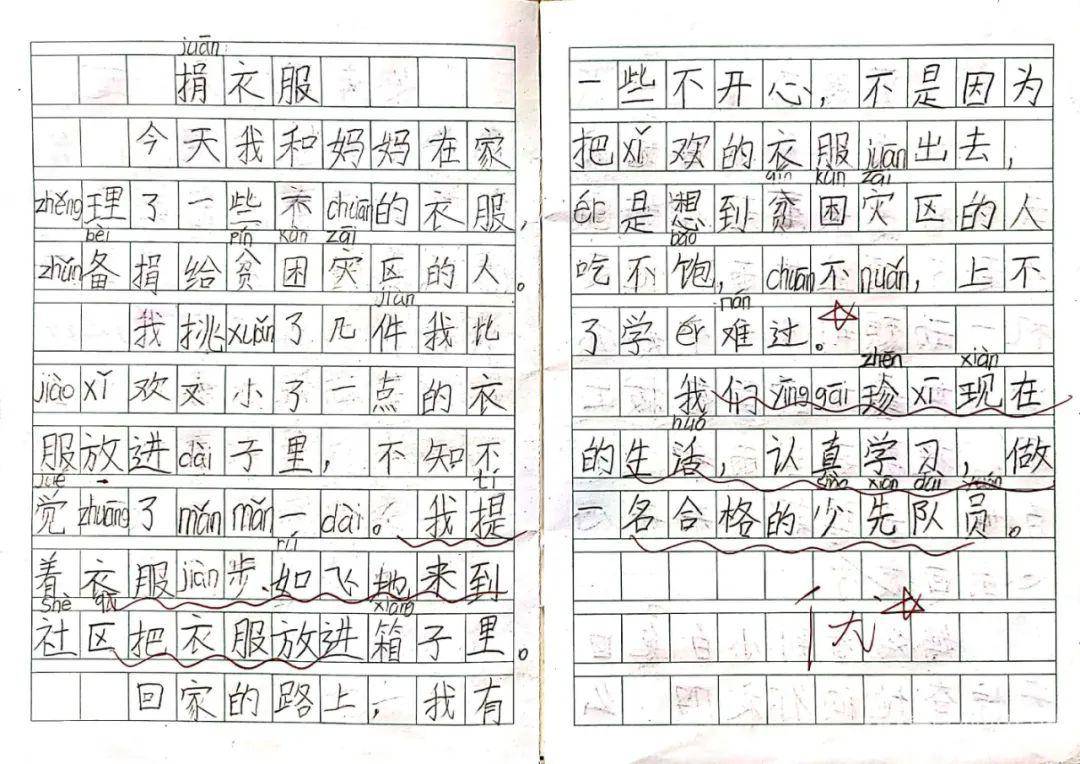 juān
捐衣服
今天我和妈妈在家
zhěng理了一些不chuān的衣服，
bèi pín kùn zāi
zhǔn备捐给贫困灾区的人。
jiàn
我挑xuǎn了几件我比
jiào xǐ欢又小了一点的衣
服放进dài子里，不知不
jué tí
觉zhuāng了mǎn mǎn一dài。我提
rú
着衣服jiàn步如飞地来到
shè qū xiāng
社区把衣服放进箱子里。
回家的路上，我有
一些不开心，不是因为
把xǐ欢的衣服juān出去，
pín kùn zāi
ér是想到贫困灾区的人
bǎo
吃不饱，chuān不nuǎn，上不
nán
了学ér难过。
zhēn xiàn
我们yīng gāi珍xī现在
huó
的生活，认真学习，做
shào xiān duì yuán
一名合格的少先队员。
优